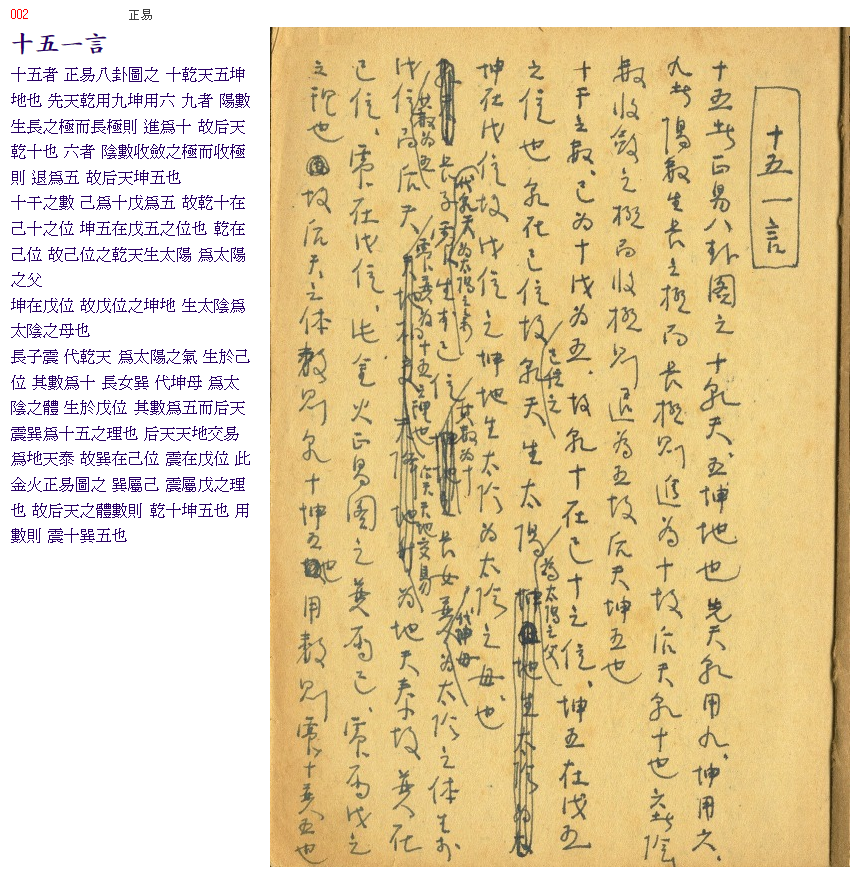 002 正易
十五一言
十五者 正易八卦圖之 十乾天五坤
地也 先天乾用九坤用六 九者 陽數
生長之極而長極則 進爲十 故后天
乾十也 六者 陰數收斂之極而收極
則 退爲五 故后天坤五也
十干之數 己爲十戊爲五 故乾十在
己十之位 坤五在戊五之位也 乾在
己位 故己位之乾天生太陽 爲太陽
之父
坤在戊位 故戊位之坤地 生太陰爲
太陰之母也
長子震 代乾天 爲太陽之氣 生於己
位 其數爲十 長女巽 代坤母 爲太
陰之體 生於戊位 其數爲五而后天
震巽爲十五之理也 后天天地交易
爲地天泰 故巽在己位 震在戊位 此
金火正易圖之 巽屬己 震屬戊之理
也 故后天之體數則 乾十坤五也 用
數則 震十巽五也
十五一言
十五者正易八卦圖之十乾天、五坤地也先天乾用九、坤用六、
九者陽數生長之極而長極則進為十故后天乾十也六者陰
數收斂之極而收極則退為五故后天坤五也
十干之數、己為十戊為五、故乾十在己十之位、坤五在戊五
之位也乾在己位故己位之乾天生太陽為太陽之父
坤在戊位故戊位之坤地生太陰為太陰之母也
長子震代乾天為太陽之氣生於己位其數為十長女巽代坤母為太陰之体生於
戊位其數為五而后天震巽為十五之理也后天天地交易為地天泰故巽在
己位、震在戊位、此金火正易圖之巽屬己、震屬戊之
之理也故后天之体數則乾十坤五也用數則震十巽五也